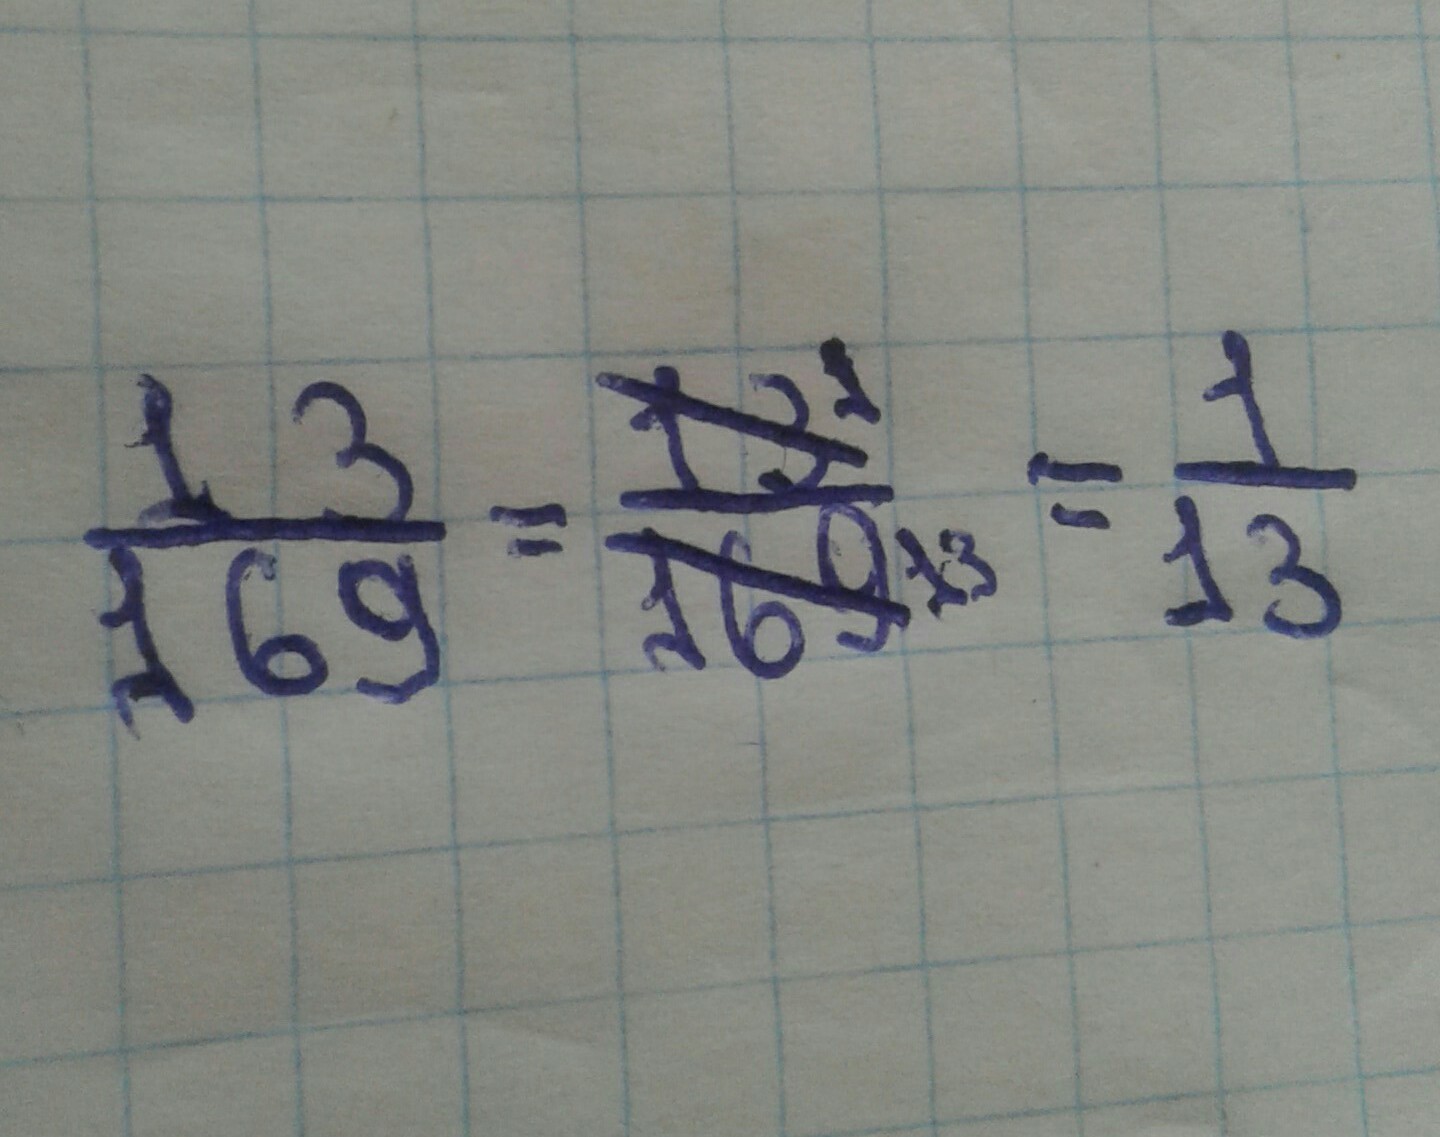 13/169 = 13¹/169₁₃ = 1/13